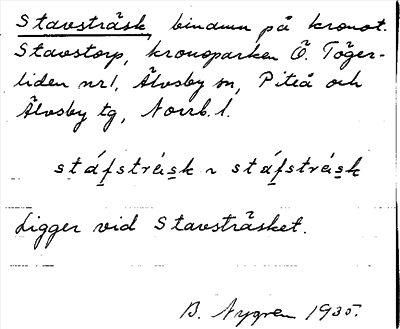 Stavsträsk, binamn på kronot.
Stavstorp, kronoparken Ö. Töger-
liden nr1, Älvsby sn, Piteå och
Älvsby tg, Norrb. l.
stáfstrẹsk ~ stáfstrẹsk
Ligger vid Stavsträsket.
B. Nygren 1935.